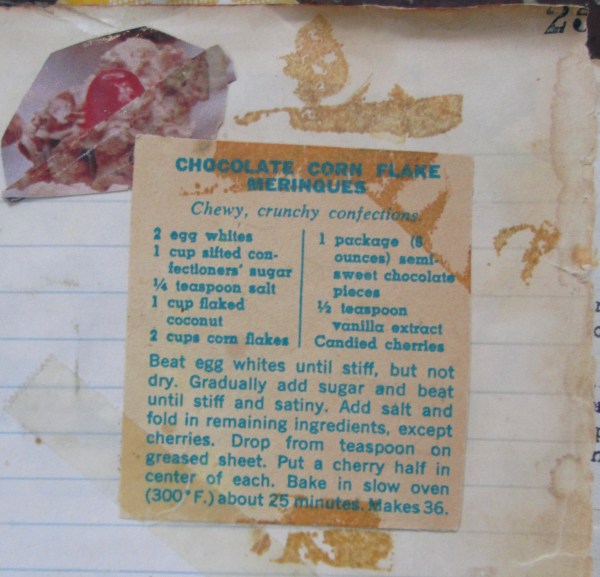 25
CHOCOLATE CORN FLAKE
MERINGUES
Chewy, crunchy confections
2 egg whites
1 cup sifted con-
fectioners' sugar
¼ teaspoon salt
1 cup flaked
coconut
2 cups corn flakes
1 package (6
ounces) semi-
sweet chocolate
pieces
½ teaspoon
vanilla extract
Candied cherries
Beat egg whites until stiff, but not
dry. Gradually add sugar and beat
until stiff and satiny. Add salt and
fold in remaining ingredients, except
cherries. Drop from teaspoon on
greased sheet. Put a cherry half in
center of each. Bake in slow oven
(300°F.) about 25 minutes. Makes 36.